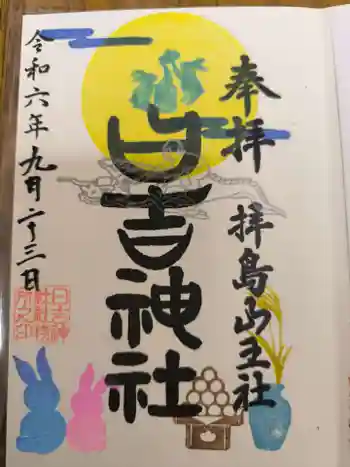 奉拝
拝島山王社
日吉神社
令和六年九月二十三日